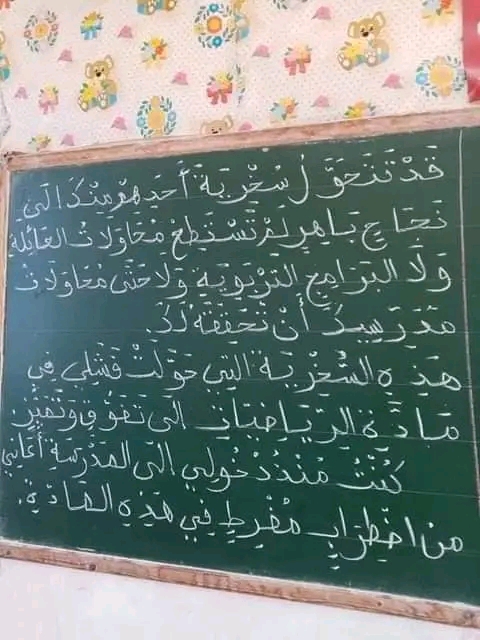 قَدْ تَتَحَوَّلُ سُخْرِيَةُ أَحَدِهِمْ مِنْكَ الَى
نَجَاحٍ بَاهِرٍ لَمْ تَسْتَطِعْ مُحَاوَلَاتُ العَائِلَةِ
وَلَا البَرَامِجِ التَرْبَوِيَةِ وَلَا حَتَّى مُحَاوَلَاتُ
مُدَرِسِيكَ أَنْ تُحَقِقَهُ لَكَ.
هَذِهِ السُّخْرِيَةُ التِي حَوَّلَتْ فَشَلِي فِي
مَادَّةِ الرِيَاضِيَاتِ الَى تَفَوُّقٍ وَتَمَيُّزٍ.
كُنْتُ مُنْذُ دُخُولِي الَى المَدْرَسَةِ أُعَانِي
مِنَ اضْطِرَابٍ مُفْرِطٍ فِي هَذِهِ المَادَّةِ.